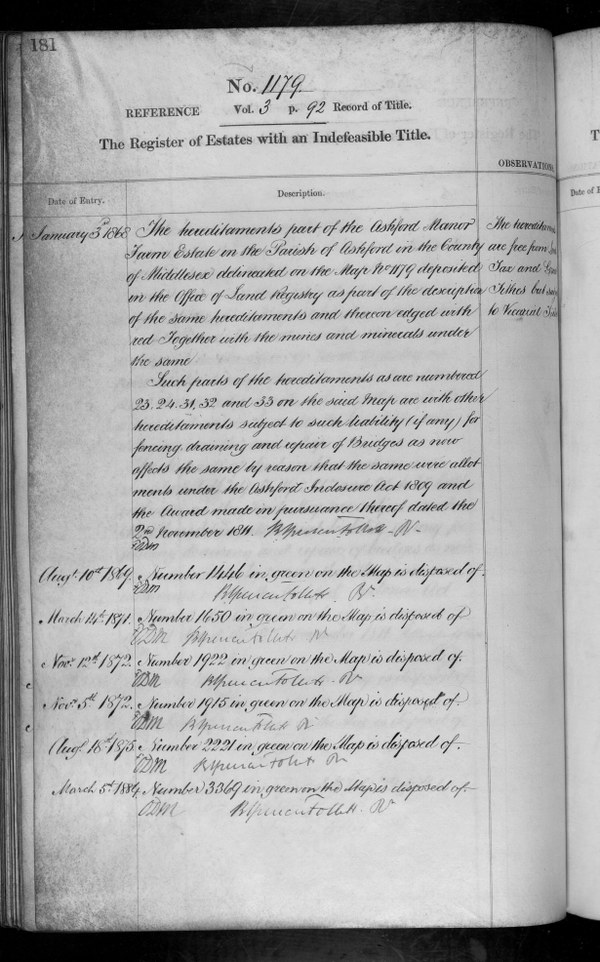 181
No. 1179
REFERENCE Vol. 3 p. 92 Record of Title.
The Register of Estates with an Indefeasible Title.
OBSERVATIONS
Date of Entry.
Description.
January 3d 1868
The hereditaments part of the Ashford Manor
Farm Estate in the Parish of Ashford in the County
of Middlesex delineated on the Map No 1179 deposited
in the Office of Land Registry as part of the description
of the same hereditaments and thereon edged with
red Together with the mines and minerals under
the same
The hereditaments
are free from Land
Tax and
Tithes but
to Vicarial
Such parts of the hereditaments as are numbered
23. 24. 31, 32 and 33 on the said Map are with other
hereditaments subject to such liability (if any) for
fencing draining and repair of Bridges as now
affects the same by reason that the same were allot
ments under the Ashford Inclosure Act 1809 and
the Award made in pursuance thereof dated the
2nd November 1811. Brent Spencer Follett - Rr
EDM
Augt. 10th 1869. Number 1446 in green on the Map is disposed of.
EDM B Spencer Follett Rr
March 14th 1871. Number 1650 in green on the Map is disposed of
EDM B Spencer Follett Rr
Novr. 12th 1872. Number 1922 in green on the Map is disposed of.
EDM B Spencer Follett Rr
Novr. 5th 1872. Number 1915 in green on the Map is disposed of.
EDM B Spencer Follett Rr
Augt. 18th 1875. Number 2221 in green on the Map is disposed of.
EDM B Spencer Follett Rr
March 5th 1884. Number 3369 in green on the Map is disposed of.
EDM B Spencer Follett Rr